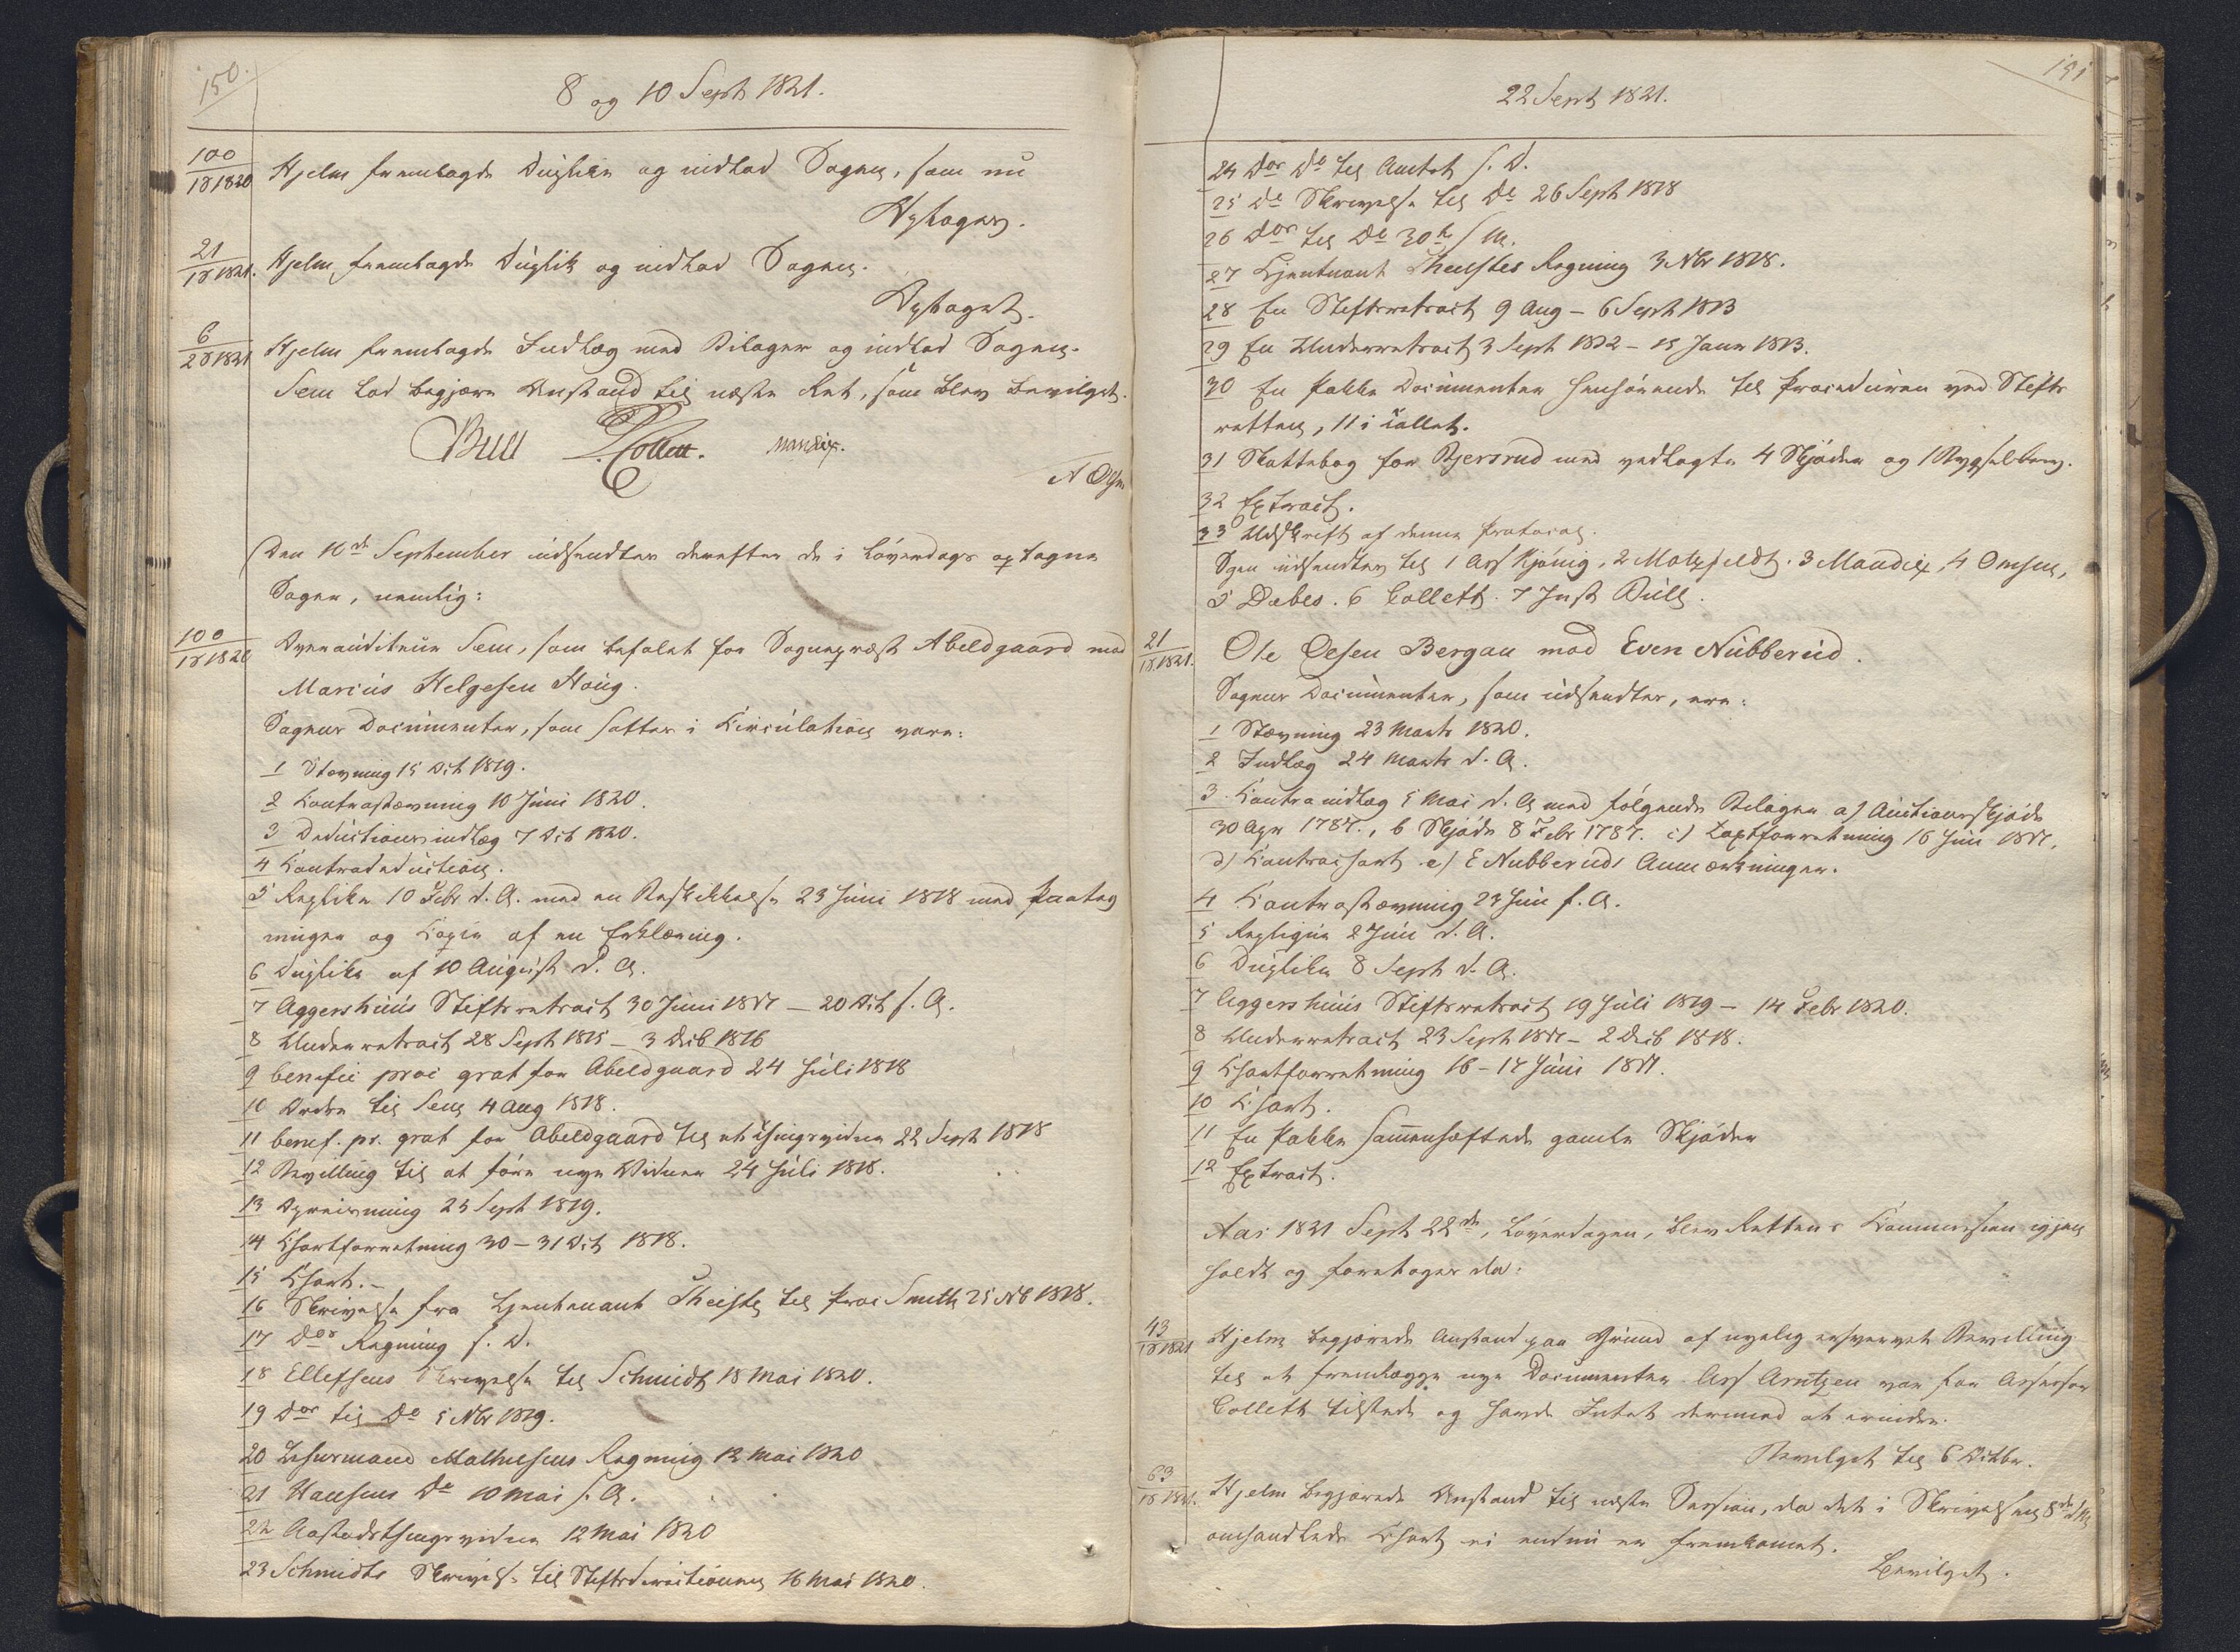 150.
8 og 10 Sept 1821.
100/18 1820 Hjelm fremlagde Duplik og indlod Sagen, som nu
Optoges.
21/18 1821. Hjelm fremlagde Duplik og indlod Sagen.
Optaget.
6/28 1821 Hjelm fremlagde Indlæg med Bilager og indlod Sagen.
Sem lod begjære Anstand til næste Ret, som blev bevilget.
Bull Collett. Mandix.
N Om
Den 10de September udsendtes derefter de i Løverdags optagne
Sager, nemlig:
100/18 1820 Overauditeur Sem, som befalet for Sognepræst Abeldgaard mod
Marcus Helgesen Houg.
Sagens Documenter, som sattes i Circulation vare:
1 Stevning 15 Oct 1819.
2 Contrastævning 10 Juni 1820.
3 Deductionsindlæg 7 Oct 1820.
4 Contradeduction.
5 Replike 10 Febr d. A. med en Beskikkelse 23 Juni 1818 med Paateg
ninger og Copie af en Erklæring.
6 Duplike af 10 August d. A.
7 Aggershuus Stiftsretsact 30 Juni 1817 – 20 Oct s. A.
8 Underretsact 28 Sept 1815 – 3 Decb 1816
9 benefic proc grat for Abeldgaard 24 Juli 1818
10 Ordre til Sem 4 Aug 1818.
11 benef. pr. grat for Abeldgaard til et Thingsvidne 22 Sept 1818
12 Bevilling til at føre nye Vidner 24 Juli 1818.
13 Opreisning 25 Sept 1819.
14 Chartforretning 30 – 31 Oct 1818.
15 Chart. –
16 Skrivelse fra Lieutenant Theiste til Proc Smith 25 Nb 1818.
17 Dos Regning s. D.
18 Ellefsens Skrivelse til Schmidt 18 Mai 1820.
19 Dos til Do 5 Nbr 1819.
20 Lehnsmand Mathiesens Regning 12 Mai 1820
21 Hansens Do 10 Mai s. A.
22 Aastedsthingsvidne 12 Mai 1820
23 Schmidts Skrivelse til Stiftsdirectionen 16 Mai 1820.
151
22 Sept 1821.
24 Dos Do til Amtet s. D.
25 Do Skrivelse til Do 26 Sept 1818
26 Dos til Do 30te s M.
27 Lieutnant Theistes Regning 3 Nbr 1818.
28 En Stiftsretsact 9 Aug – 6 Sept 1813
29 En Underretsact 3 Sept 1812 – 15 Janr 1813.
30 En Pakke Documenter henhørende til Proceduren ved Stifts
retten, 11 i Tallet.
31 Skattebog for Bjersrud med vedlagte 4 Skjøder og 1 Bygselbrev.
32 Extract.
33 Udskrift af denne Protocol.
Sagen udsendtes til 1 Ass Kjønig, 2 Motzfeldt. 3 Mandix, 4 Omsen,
5 Debes. 6 Collett. 7 Just Bull.
21/18 1821. Ole Olsen Bergan mod Even Nubberud.
Sagens Documenter, som udsendtes, ere:
1 Stævning 23 Marts 1820.
2 Indlæg 24 Marts d. A.
3 Contraindlæg 5 Mai d. A. med følgende Bilager a) Auctionsskjøde
30 Apr 1787., b Skjøde 8 Febr 1787. c) Taxtforretning 16 Juni 1817,
d) Contrachart e) E Nubberuds Anmærkninger.
4 Contrastævning 23 Juni f. A.
5 Replique 2 Juni d. A.
6 Duplike 8 Sept d. A.
7 Aggershuus Stiftsretsact 19 Juli 1819 – 14 Febr 1820.
8 Underretsact 23 Sept 1817 – 2 Decb 1818.
9 Chartforretning 16 – 17 Juni 1817.
10 Chart.
11 En Pakke sammenhæftede gamle Skjøder
12 Extract.
Aar 1821 Sept 22de, Løverdagen, blev Rettens Commission igjen
holdt og foretoges da:
43/18 1821 Hjelm begjærede Anstand paa Grund af nyelig erhvervet Bevilling
til at fremlægge nye Documenter. Ass Arntzen var for Assessor
Collett tilstede og havde Intet dermod at erindre.
Bevilget til 6 Octbr.
63/18 1821. Hjelm begjærede Anstand til næste Session, da det i Skrivelsen 8de d M
omhandlede Chart ei endnu er fremkomet.
Bevilget.